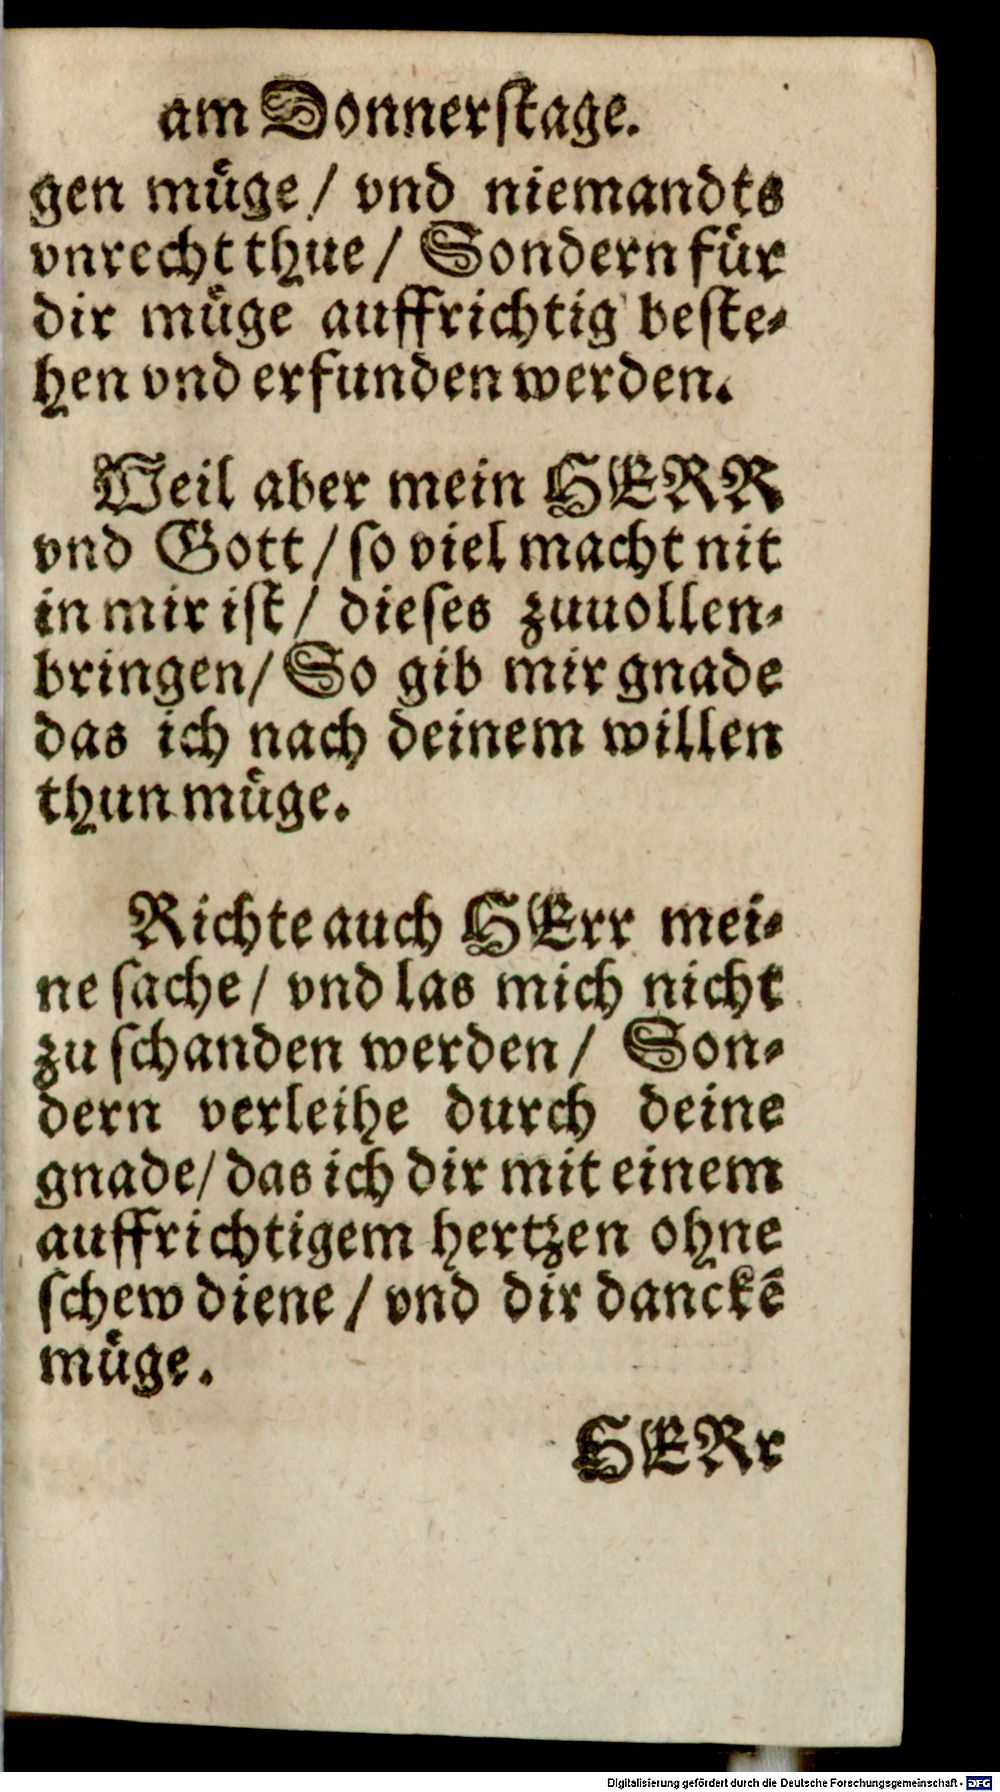 am Donnerstage.
gen müge / vnd niemandts
vnrecht thue / Sondern für
dir müge auffrichtig beste-
hen vnd erfunden werden.
Weil aber mein HERR
vnd Gott / so viel macht nit
in mir ist / dieses zuuollen-
bringen / So gib mir gnade
das ich nach deinem willen
thun müge.
Richte auch HErr mei-
ne sache / vnd las mich nicht
zu schanden werden / Son-
dern verleihe durch deine
gnade / das ich dir mit einem
auffrichtigem hertzen ohne
schew diene / vnd dir danckē
müge.
HERr
Digitalisierung gefördert durch die Deutsche Forschungsgemeinschaft - DFG